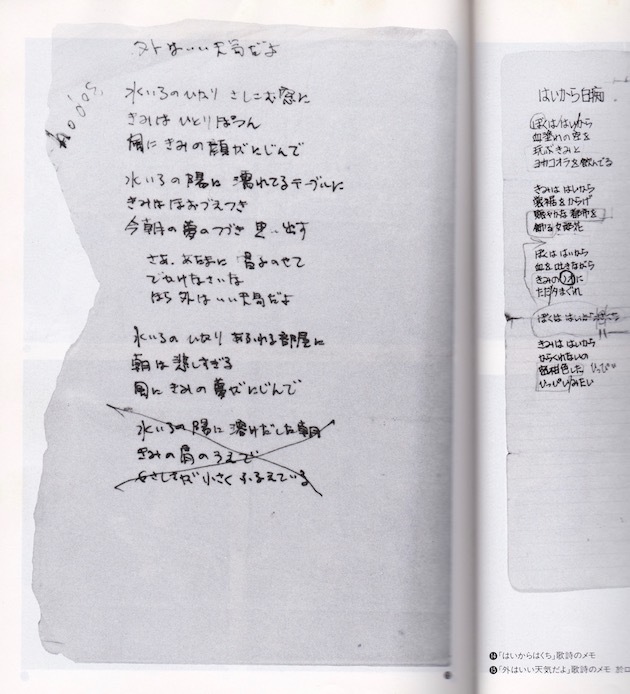 外はいい天気だよ
水いろのひかり さしこむ窓に
きみはひとり ぽつん
風にきみの顔がにじんで
水いろの陽に 濡れてるテーブルに
きみはほおづえつき
今朝の夢のつづき 思い出す
さあ、
でかけなさいな
ほら 外はいい天気だよ
水いろのひかり あふれる部屋に
朝は悲しすぎる
風にきみの夢がにじんで
水いろの陽に 溶けだした朝
きみの肩のうえで
小さくふるえている
はいから白痴
ぼくははいから
血塗れの空を
玩ぶきみと
コカコオラを飲んでる
きみははいから
裳裾をからげ
賑やかな都市を
飾る女郎花
ぼくははいから
血を吐きながら
きみのノオに
ただ夕まぐれ
ぼくははいから
きみははいから
ひっぴいみたい
⓮「はいからはくち」歌詩のメモ
⓯「外はいい天気だよ」歌詩のメモ